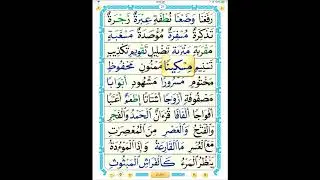 رَفَعْنَا وَضَعْنَا نُطْفَةٍ عِبْرَةً زَجْرَةٌ
تَذْكِرَةٌ مُسْفِرَةٌ مُؤْصَدَةٌ مَسْغَبَةٍ
مَقْرَبَةٍ مَتْرَبَةٍ تَضْلِيْلٍ تَقْوِيْمٍ تَكْذِيْبٍ
تَسْنِيْمٍ مِسْكِيْنًا مَمْنُوْنٍ مَحْفُوْظٍ
مَخْتُوْمٍ مَسْرُوْرًا مَشْهُوْدٍ اَبْوَابًا
مَصْفُوْفَةٌ اَزْوَاجًا اَشْتَاتًا اِطْعٰمٌ اَعْنَابًا
اَفْوَاجًا اَلْفَافًا قُرْءَانٌ اَلْحَمْدُ وَالْفَجْرِ
وَالْفَتْحُ وَالْعَصْرِ مِنَ الْمُعْصِرٰتِ
مَعَ الْعُسْرِ مَا الْقَارِعَةُ وَاِذَا الْمَوْءٗدَةُ
يَنْظُرُ الْمَرْءُ كَالْفَرَاشِ الْمَبْثُوْثِ